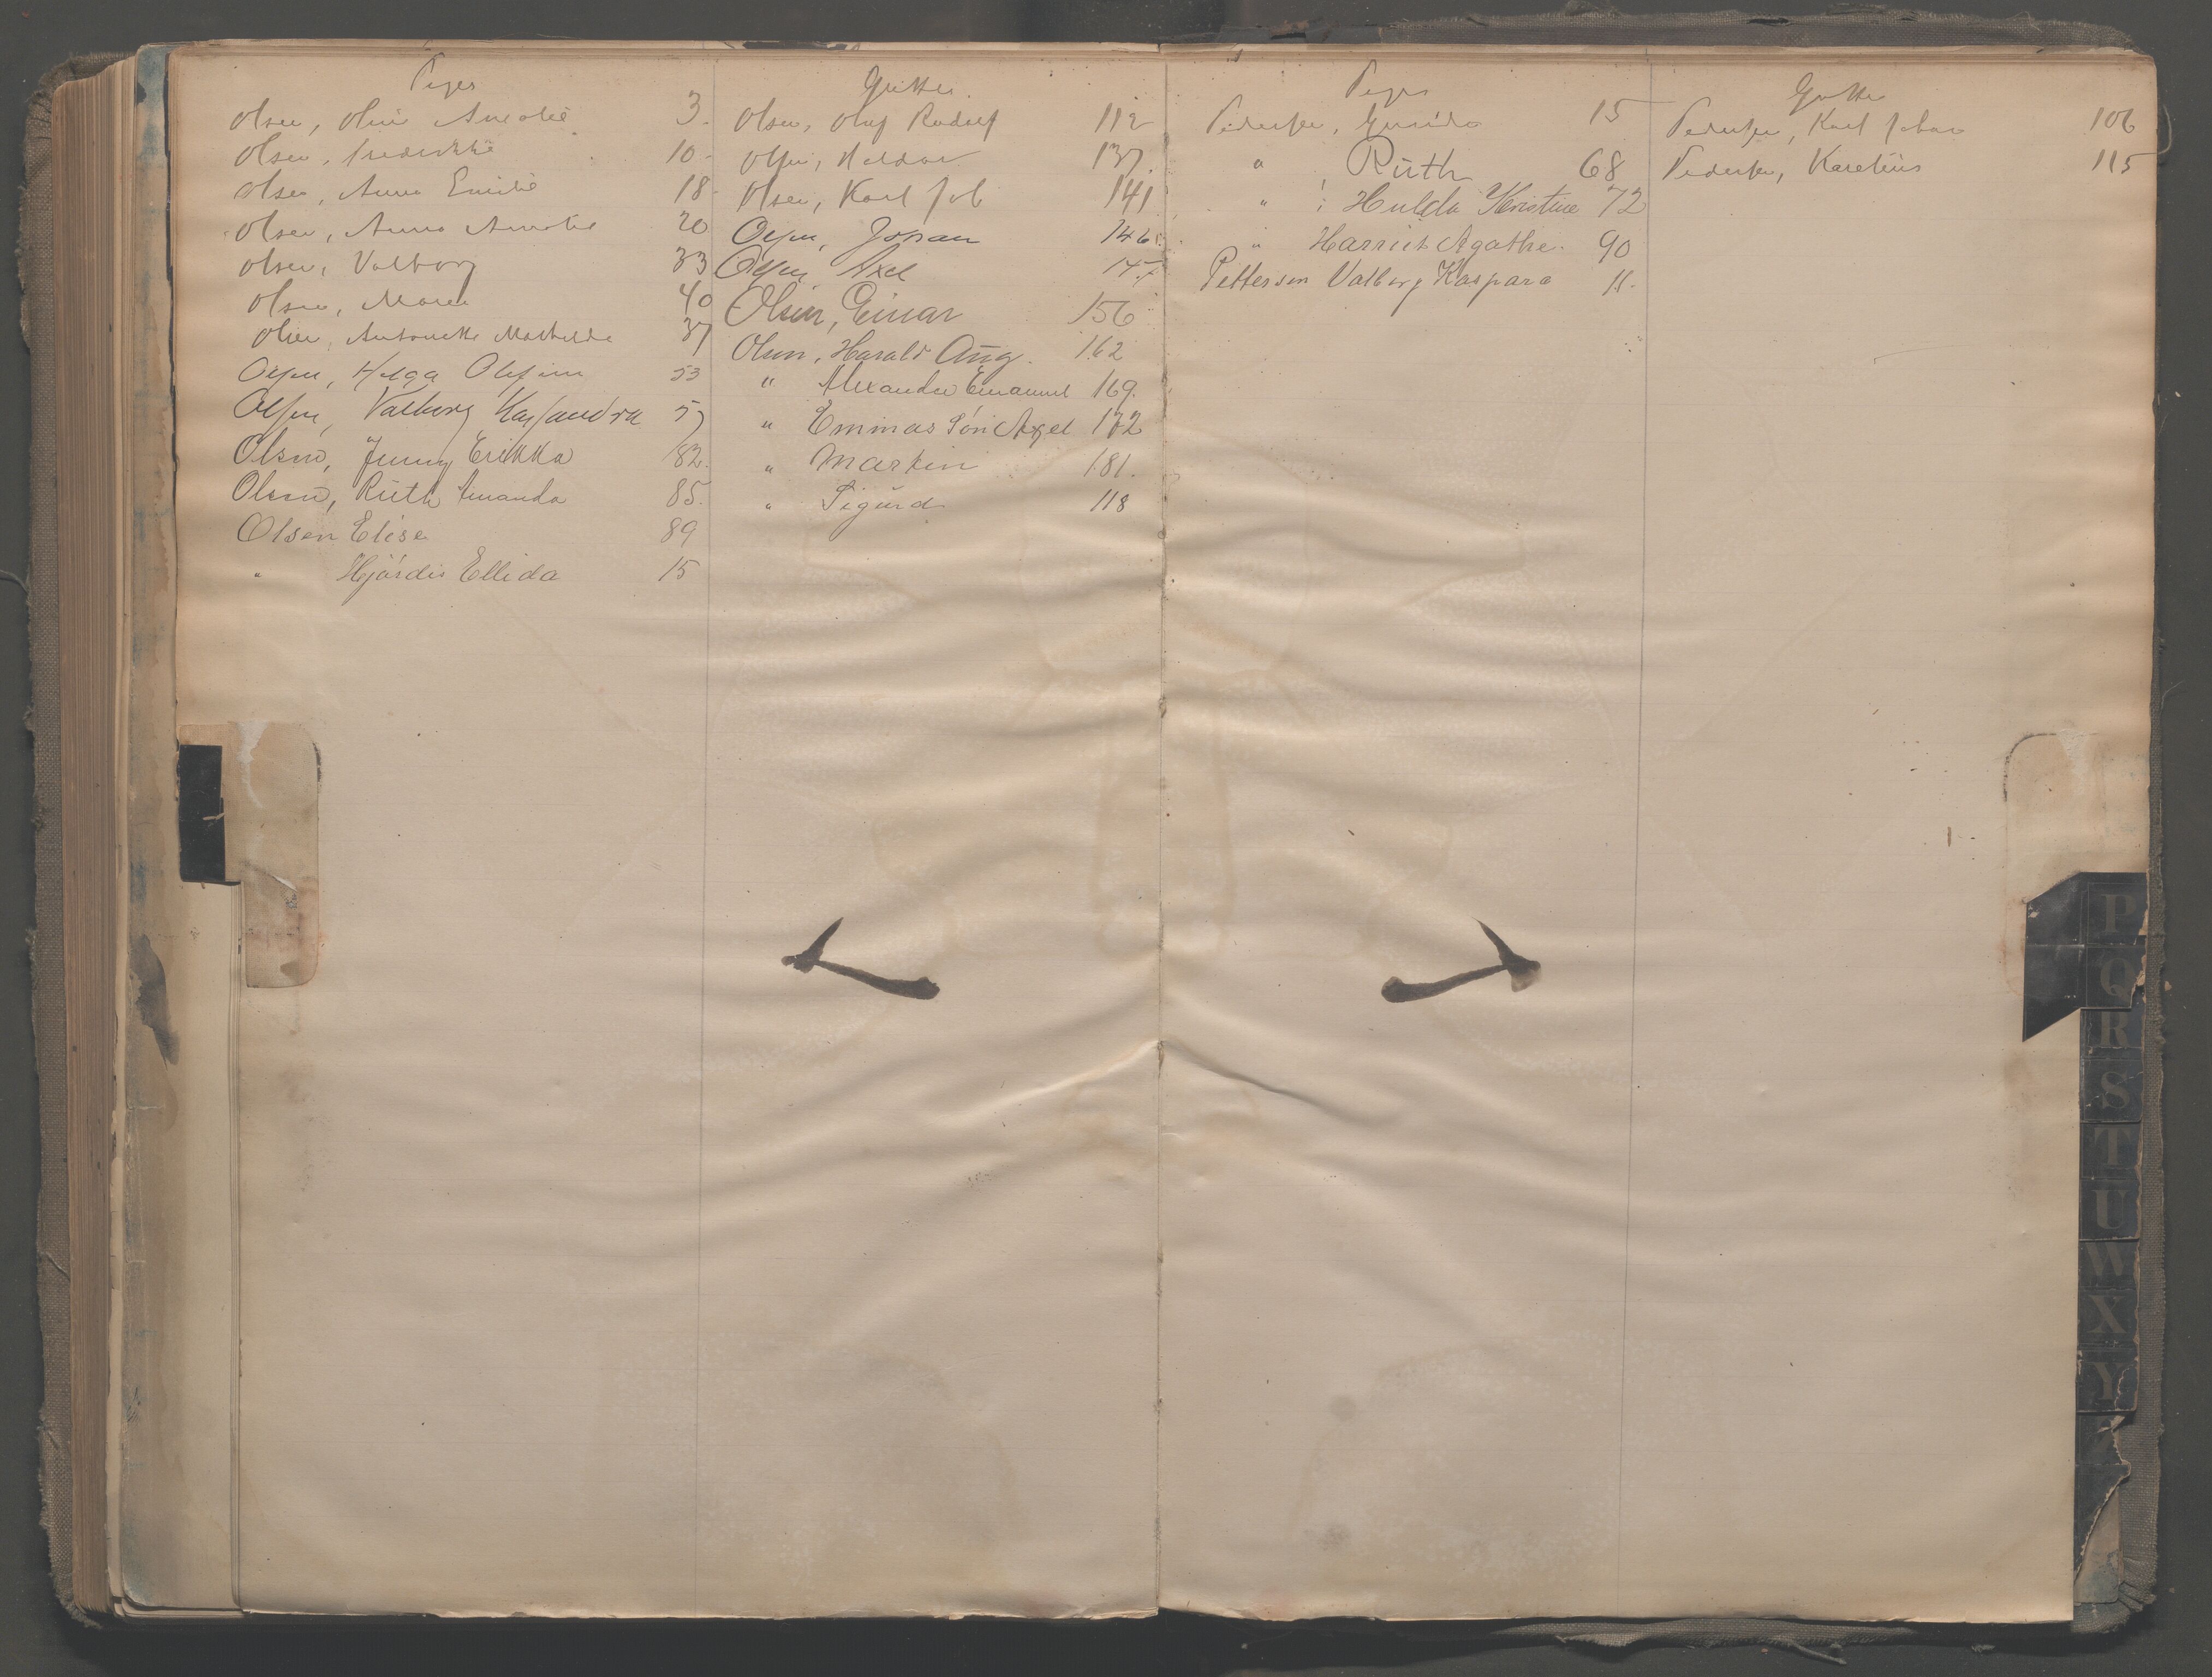 Piger
Olsen, Olin Amalie 3.
Olsen, Fredrikke 10.
Olsen, Anna Emilie 18
Olsen, Anna Amalie 20
Olsen, Valborg 33
Olsen, Maren 40
Olsen, Antonette Mathilde 37
Olsen, Helga Olefine 53
Olsen, Valborg Kassandra 57
Olsen, Jenny Erikka 82.
Olsen, Ruth Amanda 85.
Olsen Elise 89
" Hjørdis Ellida 15
Gutter.
Olsen, Olaf Rudolf 112
Olsen, Haldor 137.
Olsen, Karl Joh 141
Olsen, Johan 146
Olsen, Axel
Olsen, Einar 156
Olsen, Harald Aug. 162
" Alexander Emanuel 169.
" Emmas Søn Axel 172
" Martin 181.
" Sigurd 118
Piger
Pedersen, 15
" , Ruth 68
" , Hulda Kristine 72
" Harriet Agathe. 90
Petterson Valborg Kaspara 11.
Gutter
Pedersen, Karl Johan 106
Pedersen, Karelius 115
P
Q
R
S
T
U
W
X
Y
Z